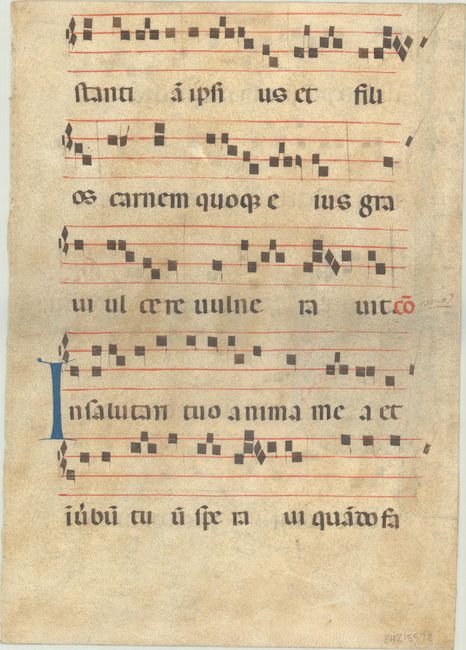 stanti ā ipsi us et fili
os carnem quoqꝫ e ius gra
ui ul ce re uulne ra uit. cō
In salutari tuo anima me a et
ī ūbū tu ū spe ra ui quādo fa